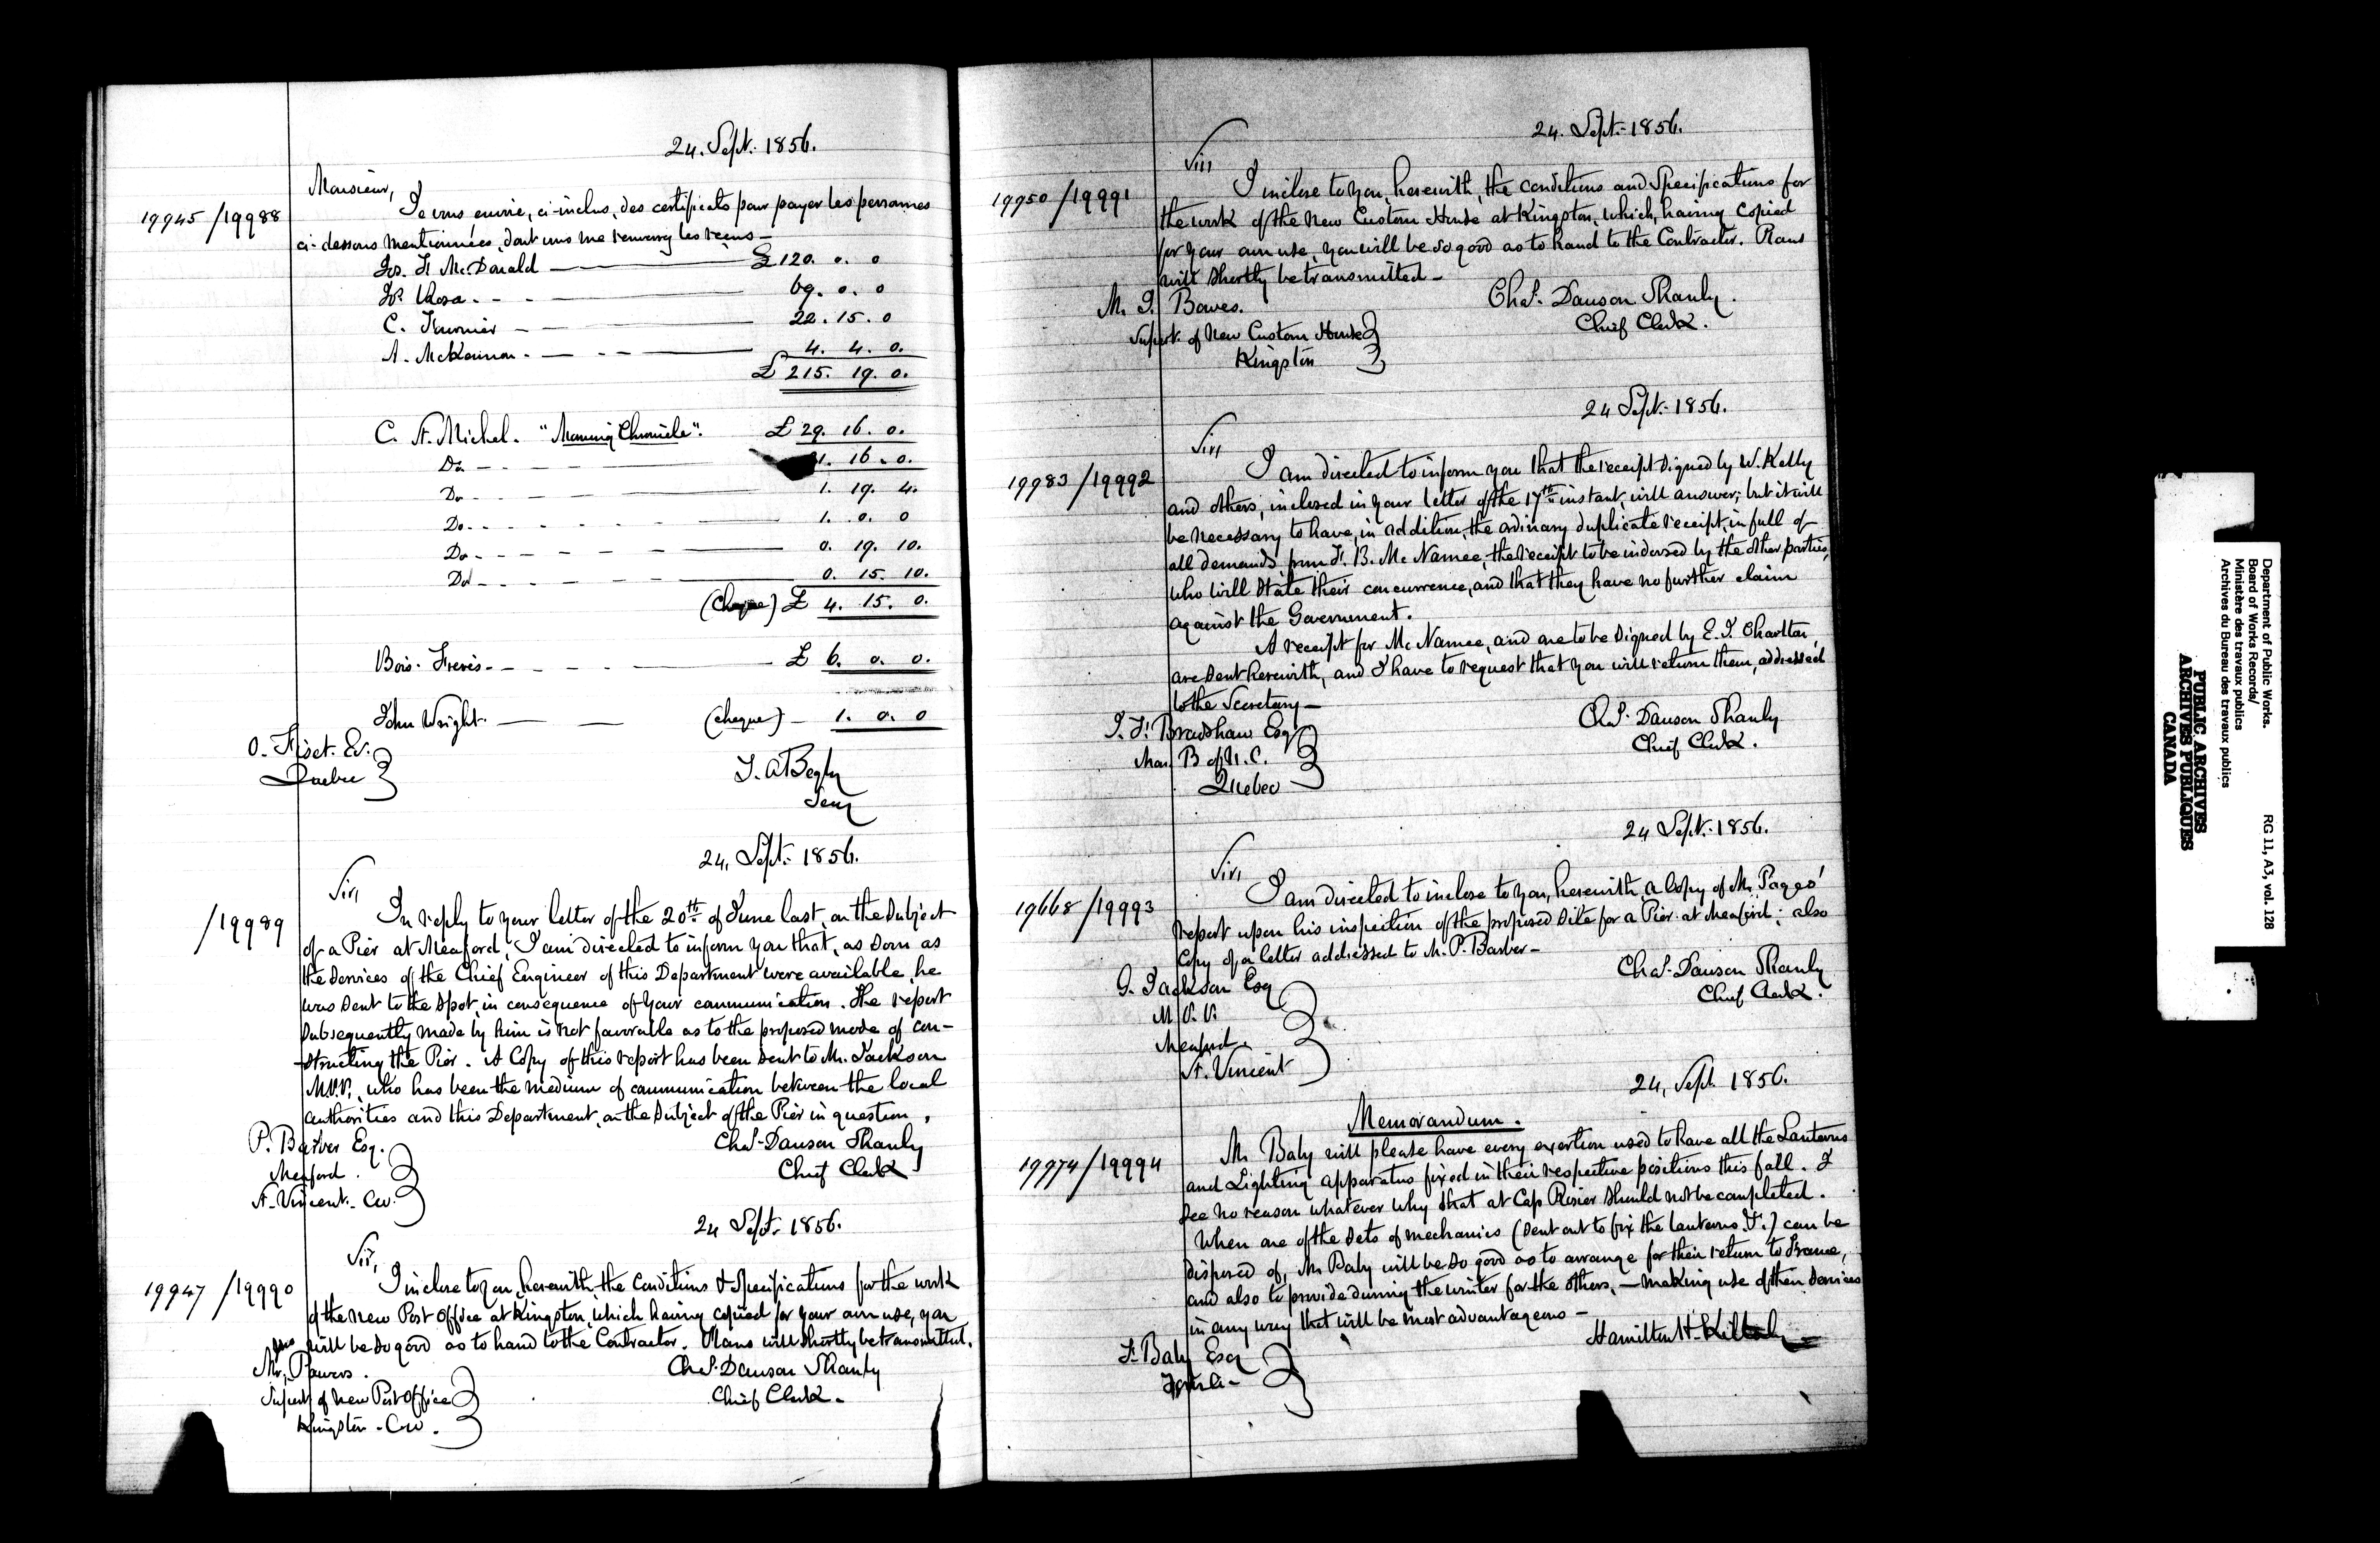 24. Sept. 1856.
Monsieur,
19945/19988
Je vous envoie, ci-inclus, des certificats pour payer les personnes
ci-dessous mentionnées, dont vous me renverrez les reçus—
Jos. F. McDonald — £120. 0. 0
Jos. Rosa. - - — 69. 0. 0
C. Fournier — 22. 15. 0
A. McKennon. — 4. 4. 0.
£ 215. 19. 0.
C. St. Michel. "Morning Chronicle". £ 29. 16. 0.
Do — 1. 16. 0.
Do — 1. 19. 4.
Do — 1. 0. 0
Do — 0. 19. 10.
Do — 0. 15. 10.
(Cheque) £ 4. 15. 0.
Bois. Freres — £ 6. 0. 0.
John Wright. — (cheque) — 1. 0. 0
O. Fiset. Er.
Quebec
T. A Begly
Secy
24, Sept. 1856.
Sir,
/19989
In reply to your letter of the 20th of June last, on the subject
of a Pier at Meaford, I am directed to inform you that, as soon as
the services of the Chief Engineer of this Department were available, he
was sent to the spot, in consequence of your communication. The report
subsequently made by him is not favorable as to the proposed mode of con-
-structing the Pier. A Copy of this report has been sent to Mr. Jackson
M.P.P., who has been the medium of communication between the local
authorities and this Department, on the subject of the Pier in question.
P. Barber Esq.
Meaford.
St. Vincent. C.W.
Chas. Dawson Shanly
Chief Clerk
24 Sept. 1856.
Sir,
19947/19990
I inclose to you, herewith, the Conditions & Specifications for the work
of the new Post Office at Kingston, which having copied for your own use, you
will be so good as to hand to the Contractor. Plans will shortly be transmitted.
Mr, Powers.
Supert of new Post Office
Kingston - C.W.
Chas. Dawson Shanly
Chief Clerk.
24. Sept. 1856.
Sir,
19950/19991
I inclose to you, herewith, the conditions and Specifications for
the work of the new Custom House at Kingston, which, having copied
for your own use, you will be so good as to hand to the Contractor. Plans
will shortly be transmitted—
M. J. Bowes.
Supert. of New Custom House
Kingston
Chas. Dawson Shanly.
Chief Clerk.
24 Sept. 1856.
Sir,
19983/19992
I am directed to inform you that the receipt signed by W. Kelly
and others, inclosed in your letter of the 17th instant, will answer; but it will
be necessary to have, in addition, the ordinary duplicate receipt, in full of
all demands from F. B. McNamee, the receipt to be indorsed by the other parties,
who will state their concurrence, and that they have no further claim
against the Government.
A receipt for McNamee, and one to be signed by E. J. Charlton,
are sent herewith, and I have to request that you will return them, addressed
to the Secretary—
J. F. Bradshaw Esq
Man. B of U. C.
Quebec
Chas. Dawson Shanly
Chief Clerk.
24 Sept. 1856.
Sir,
19668/19993
I am directed to inclose to you, herewith, a Copy of Mr. Pages'
report upon his inspection of the proposed site for a Pier at Meaford; also
Copy of a letter addressed to Mr. P. Barber—
G. Jackson Esq
M.P.P.
Meaford.
St. Vincent
Chas. Dawson Shanly
Chief Clerk.
24, Sept. 1856.
Memorandum.
19974/19994
Mr Baby will please have every exertion used to have all the Lanterns
and Lighting apparatus fixed in their respective positions this fall. I
see no reason whatever why that at Cap Rosier should not be completed.
When one of the sets of mechanics (sent out to fix the lanterns &c.) can be
disposed of, Mr Baby will be so good as to arrange for their return to France,
and also to provide during the winter for the others, — making use of their services
in any way that will be most advantageous—
F. Baby Esq
Hamilton H. Killaly
Department of Public Works.
Board of Works Records/
Ministère des travaux publics
Archives du Bureau des travaux publics
RG 11, A3, vol. 128
PUBLIC ARCHIVES
ARCHIVES PUBLIQUES
CANADA